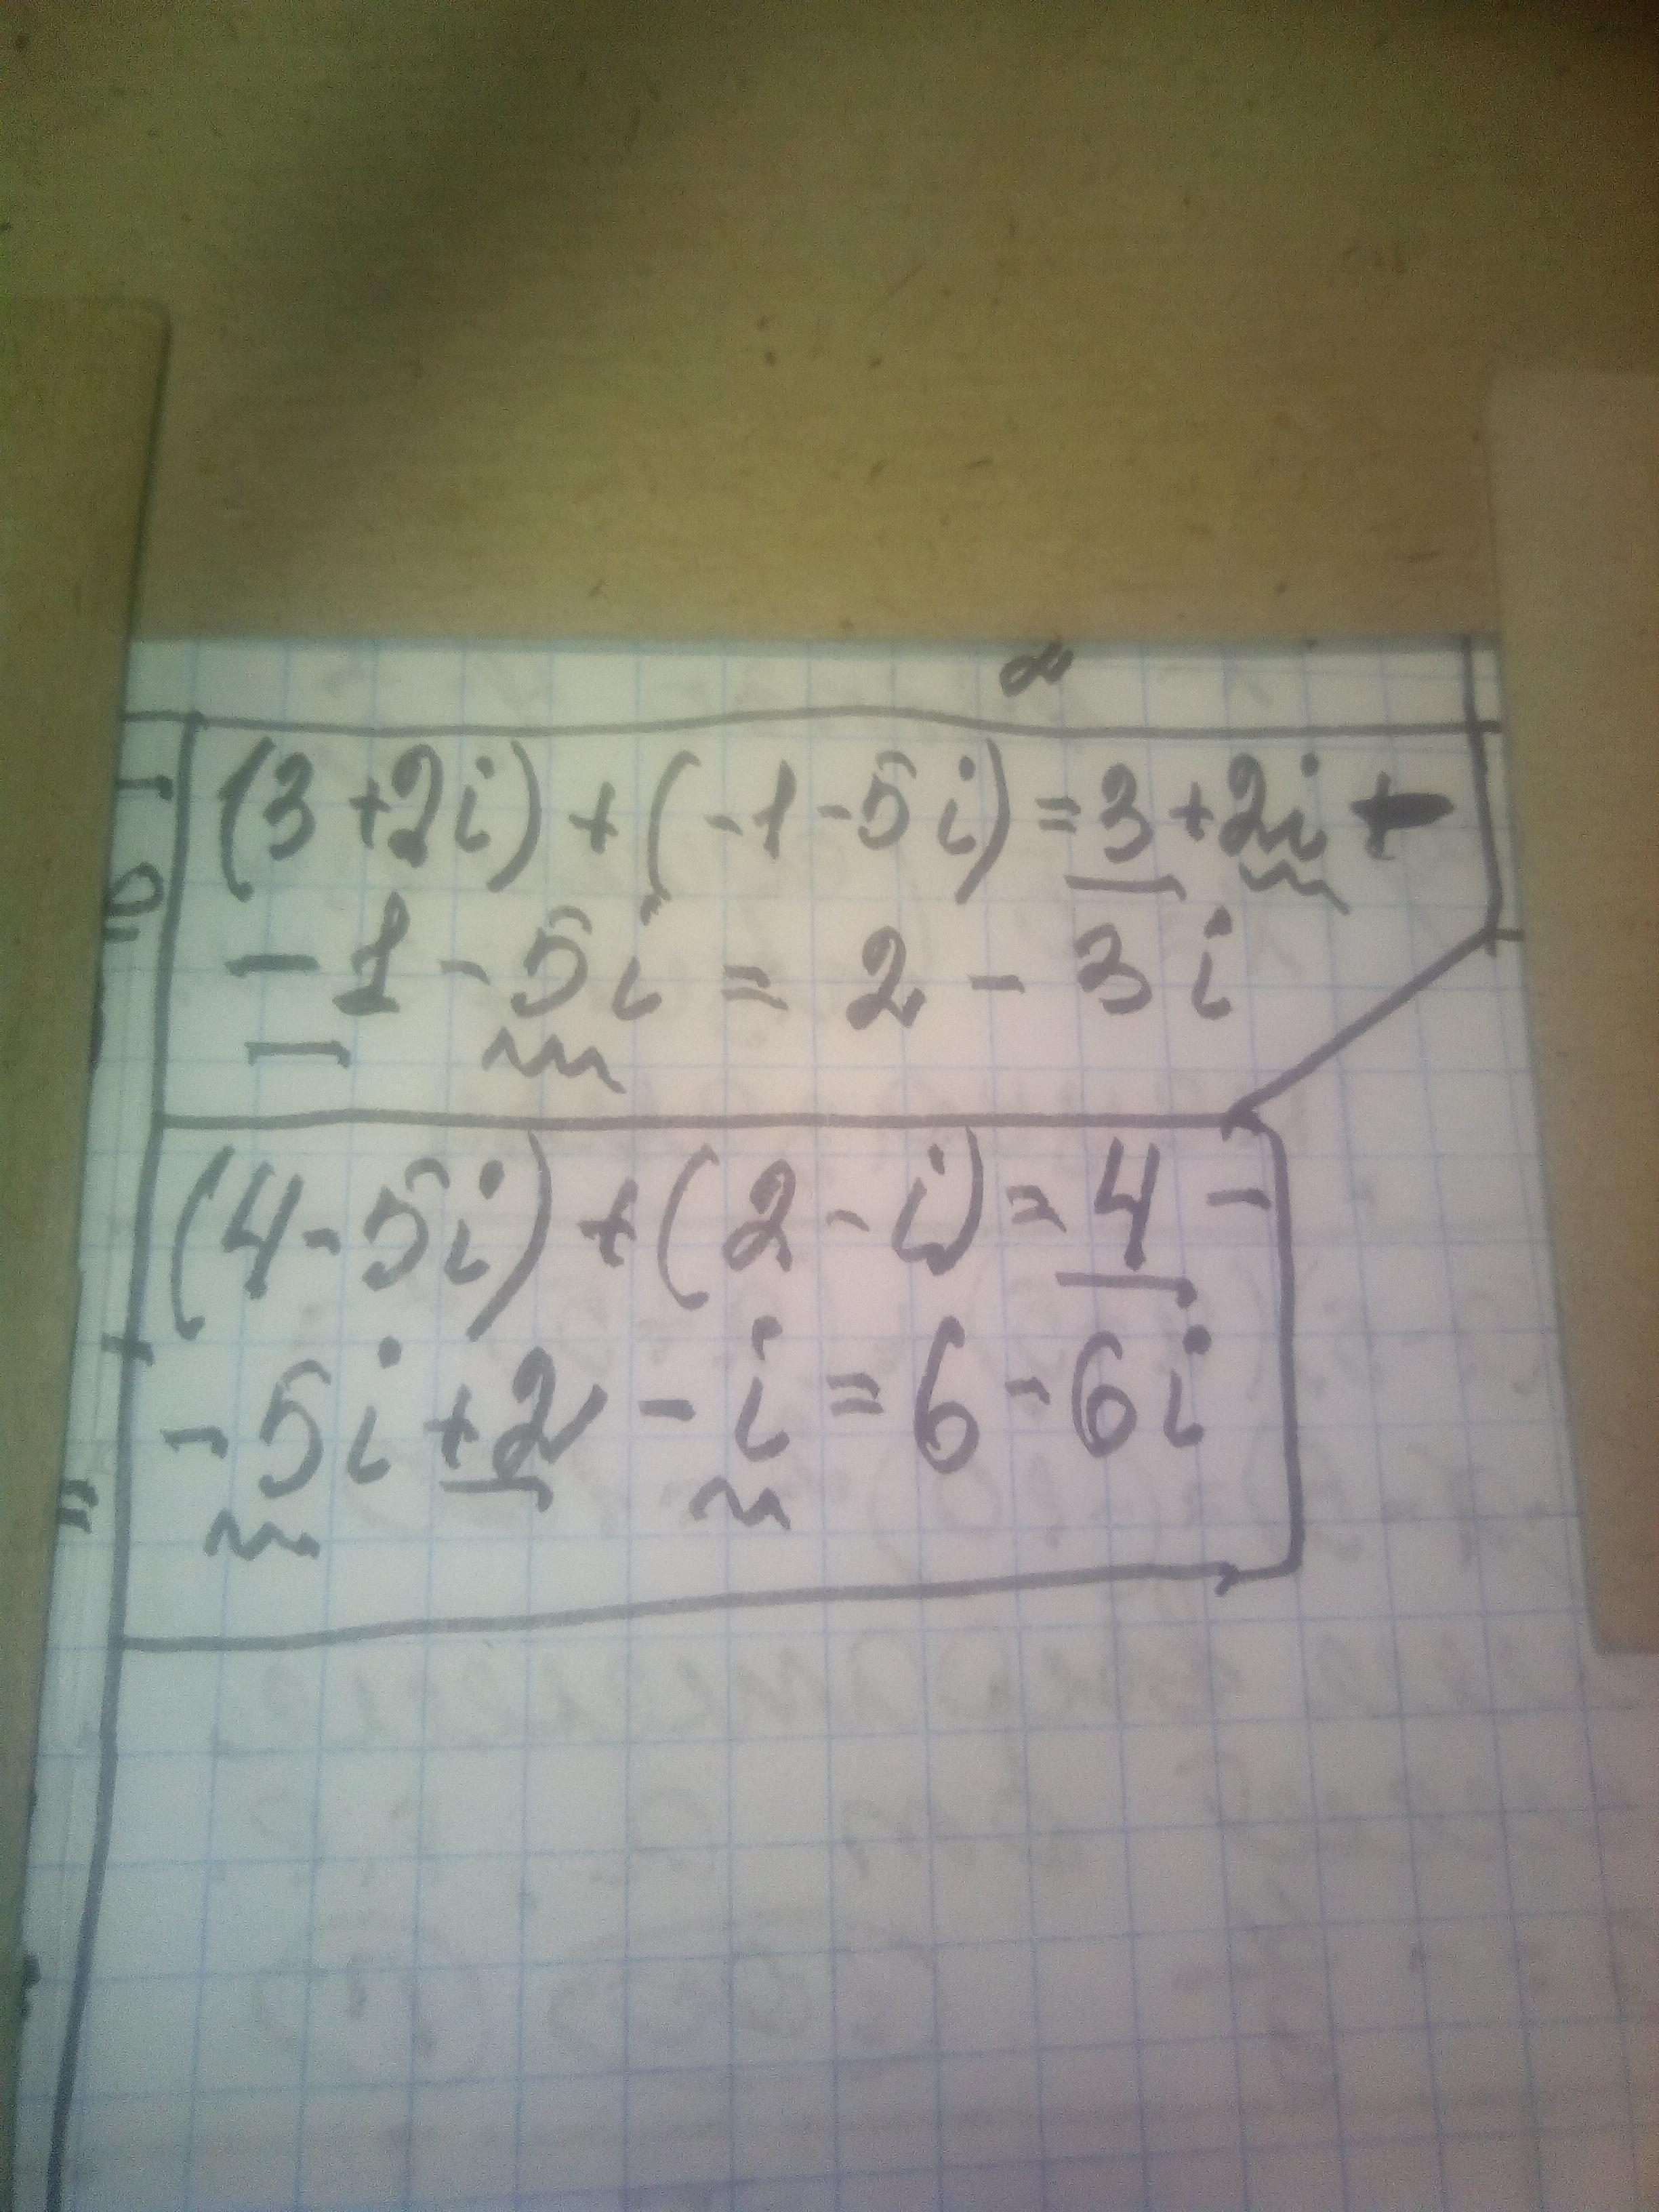 (3+2i)+(-1-5i)=3+2i-
-1-5i=2-3i
(4-5i)+(2-i)=4-
-5i+2-i=6-6i